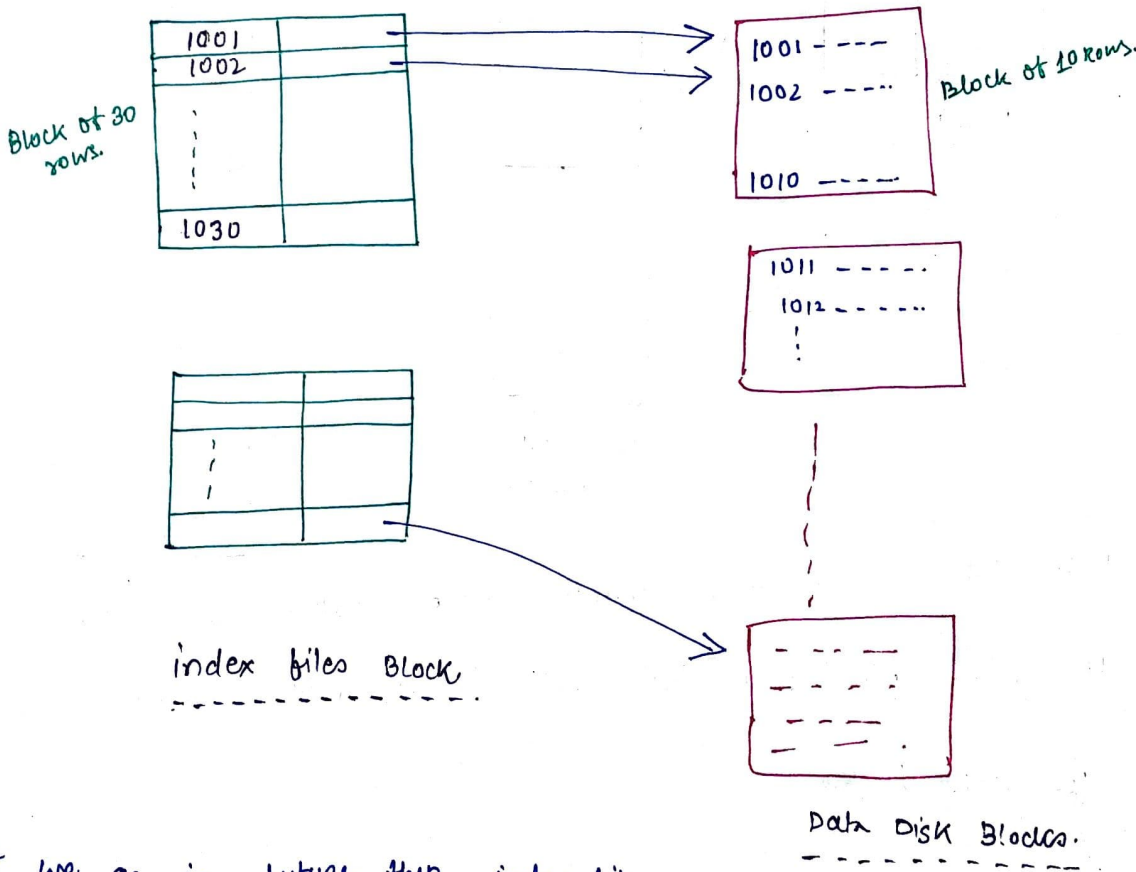 1001
1002
Block of 30
rows.
1030
1001 - - - -
1002 - - - - -
1010 - - - - -
Block of 10 Rows.
1011 - - - - -
1012 - - - - - -
index files Block
Data Disk Blocks.